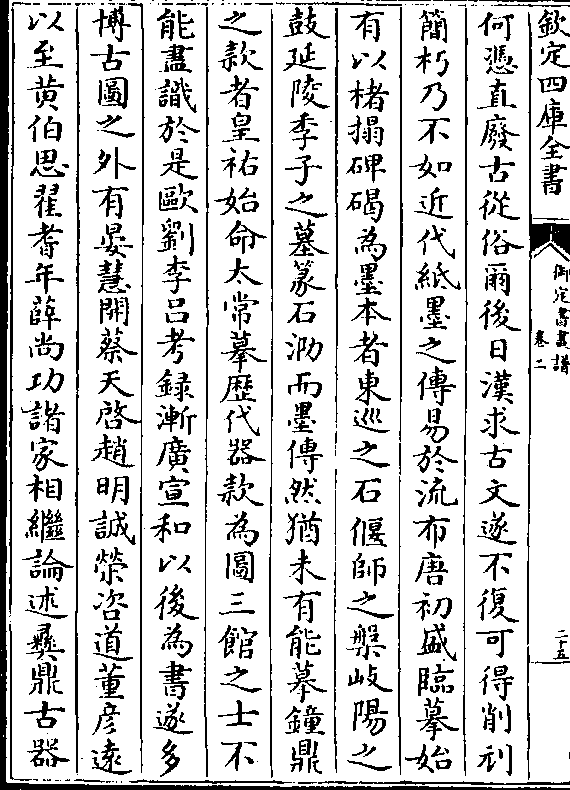 欽定四庫全書
御定書畫譜
卷二
二十五
何憑直廢古從俗爾後日漢求古文遂不復可得削刋
簡朽乃不如近代紙墨之傳易於流布唐初盛臨摹始
有以楮搨碑碣為墨本者東巡之石偃師之槃岐陽之
鼓延陵季子之墓篆石泐而墨傳然猶未有能摹鐘鼎
之款者皇祐始命太常摹歴代器款為圖三館之士不
能盡識於是歐劉李呂考録漸廣宣和以後為書遂多
博古圖之外有晏慧開蔡天啓趙明誠榮咨道董彦逺
以至黄伯思翟耆年薛尚功諸家相繼論述彝鼎古器